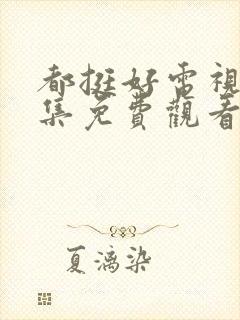 都挺好電視
集免費觀看
夏漓染